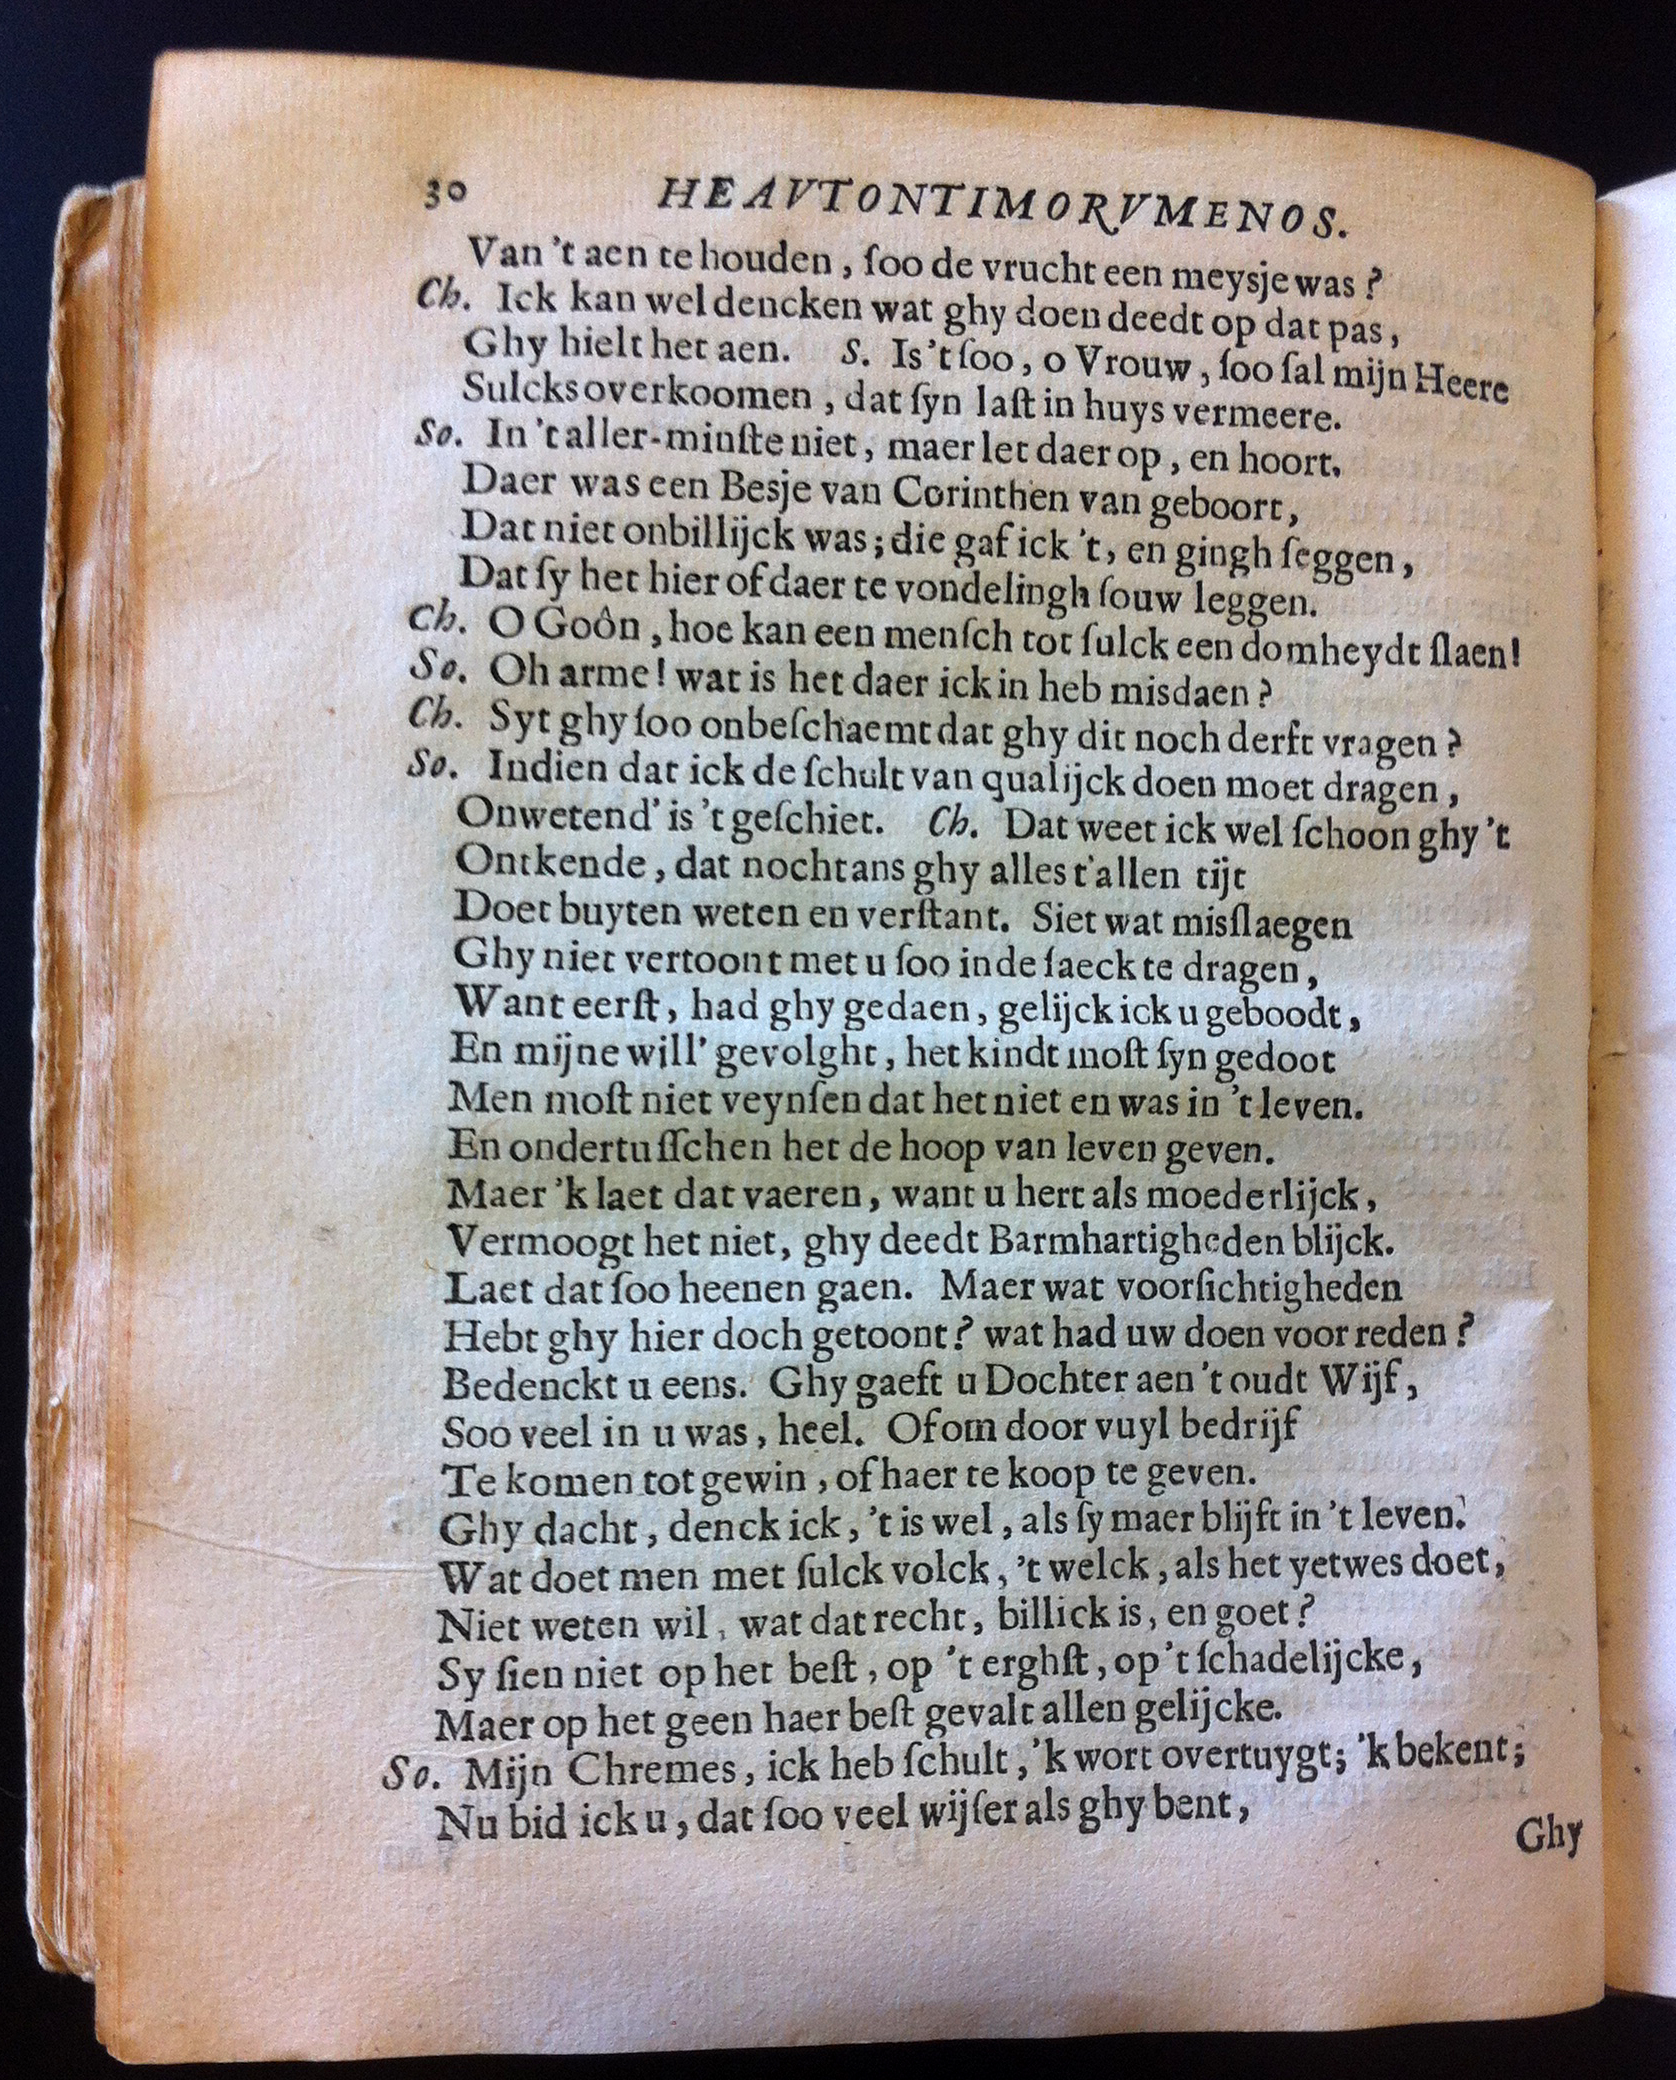 30 HEAVTONTIMORVMENOS.
Van 't aen te houden, ſoo de vrucht een meysje was?
Ch. Ick kan wel dencken wat ghy doen deedt op dat pas,
Ghy hielt het aen. S. Is 't ſoo, o Vrouw, ſoo ſal mijn Heere
Sulcks overkoomen, dat ſyn laſt in huys vermeere.
So. In 't aller-minſte niet, maer let daer op, en hoort.
Daer was een Besje van Corinthen van geboort,
Dat niet onbillijck was; die gaf ick 't, en gingh ſeggen,
Dat ſy het hier of daer te vondelingh ſouw leggen.
Ch. O Goôn, hoe kan een menſch tot ſulck een domheydt ſlaen!
So. Oh arme! wat is het daer ick in heb misdaen?
Ch. Syt ghy ſoo onbeſchaemt dat ghy dit noch derft vragen?
So. Indien dat ick de ſchult van qualijck doen moet dragen,
Onwetend' is 't geſchiet. Ch. Dat weet ick wel ſchoon ghy 't
Ontkende, dat nochtans ghy alles t'allen tijt
Doet buyten weten en verſtant. Siet wat misſlaegen
Ghy niet vertoont met u ſoo in de ſaeck te dragen,
Want eerſt, had ghy gedaen, gelijck ick u geboodt,
En mijne will' gevolght, het kindt moſt ſyn gedoot
Men moſt niet veynſen dat het niet en was in 't leven.
En ondertuſſchen het de hoop van leven geven.
Maer 'k laet dat vaeren, want u hert als moederlijck,
Vermoogt het niet, ghy deedt Barmhartigheden blijck.
Laet dat ſoo heenen gaen. Maer wat voorſichtigheden
Hebt ghy hier doch getoont? wat had uw doen voor reden?
Bedenckt u eens. Ghy gaeft u Dochter aen 't oudt Wijf,
Soo veel in u was, heel. Of om door vuyl bedrijf
Te komen tot gewin, of haer te koop te geven.
Ghy dacht, denck ick, 't is wel, als ſy maer blijft in 't leven.
Wat doet men met ſulck volck, 't welck, als het yetwes doet,
Niet weten wil, wat dat recht, billick is, en goet?
Sy ſien niet op het beſt, op 't erghſt, op 't ſchadelijcke,
Maer op het geen haer beſt gevalt allen gelijcke.
So. Mijn Chremes, ick heb ſchult, 'k wort overtuygt; 'k bekent;
Nu bid ick u, dat ſoo veel wijſer als ghy bent,
Ghy